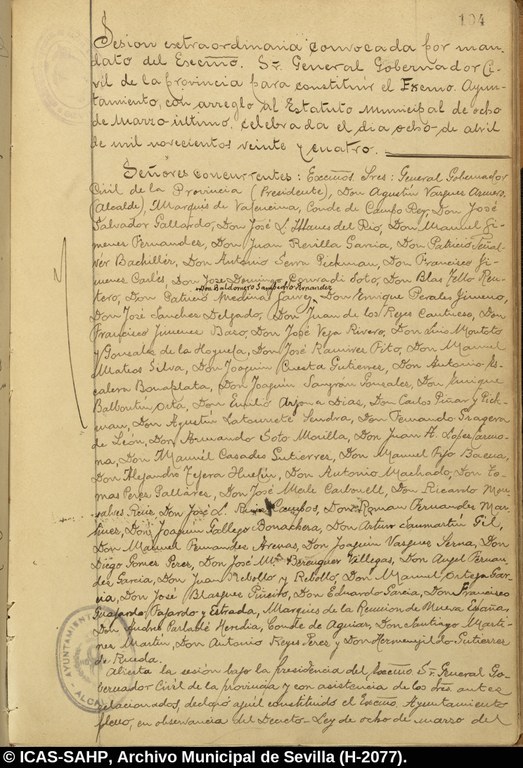 104
Sesion extraordinaria convocada por man-
dato del Excmo. Sr. General Gobernador Ci-
vil de la provincia para constituir el Excmo. Ayun-
tamiento, con arreglo al Estatuto Municipal de ocho
de Marzo último, celebrada el dia ocho de abril
de mil novecientos veinte y cuatro.
Señores concurrentes: Excmos Sres: General Gobernador
Civil de la Provincia (Presidente), Don Agustin Vazquez Armero
(Alcalde), Marqués de Valencina, Conde de Campo Rey, Don José
Salvador Gallardo, Don José L. Illanes del Rio, Don Manuel Gi-
menez Fernandez, Don Juan Revilla Garcia, Don Patricio Peñal-
ver Bachiller, Don Antonio Serra Pickman, Don Francisco Ji-
menez Carlés, Don José Domingo Conradi Soto, Don Blas Tello Ren-
Don Baldomero Sampedro Fernandez
tero, Don Patricio Medina Garvey, Don Enrique Perales Gimeno,
Don José Sanchez Delgado, Don Juan de los Reyes Don
Francisco Jimenez Don José Vega Rivero, Don Luis Montoto
y Gonzalez de la Hoyuela, Don José Ramirez Pito, Don Manuel
Mateos Silva, Don Joaquin Cuesta Gutierrez, Don Antonio Es-
calera Bonaplata, Don Joaquin Sangran Gonzalez, Don Enrique
Balbontin Orta, Don Emilio Dias, Don Carlos Piñar y Pick-
man, Don Agustin Don Fernando Fragero
de León, Don Armando Soto Morilla, Don Juan A. Lopez
Don Manuel Casades Gutierrez, Don Manuel Rojo Baena,
Don Alejandro Tejera Don Antonio Machado, Don To-
mas Perez Don José Male Carbonell, Don Ricardo
Ruiz, Don José L. Campos, Don Roman Fernandez Mar-
tinez, Don Joaquin Gallego Bonachera, Don Arturo Gil,
Don Manuel Fernandez Arenas, Don Joaquin Vazquez Don
Diego Gomez Perez, Don José Mª Berenguer Villegas, Don Angel Fernan-
dez Garcia, Don Juan Rebollo y Rebollo, Don Manuel Ortega Gar-
cia, Don José Blasquez Piñeiro, Don Eduardo Garcia, Don Francisco
Fajardo y Estrada, Marqués de la Reunion de Nueva España
Don Pedro Parladé Heredia, Conde de Aguiar, Don Santiago Marti-
nez Martin, Don Antonio Reyes Perez y Don Hermenegildo Gutierrez
de Rueda.
Abierta la sesión bajo la presidencia del Excmo Sr. General Go-
bernador Civil de la provincia y con asistencia de los Sres antes
relacionados, declaró aquél constituido el Excmo Ayuntamiento
pleno, en observancia del Decreto-Ley de ocho de marzo del
AYUNTAMIENTO
© ICAS-SAHP, Archivo Municipal de Sevilla (H-2077).